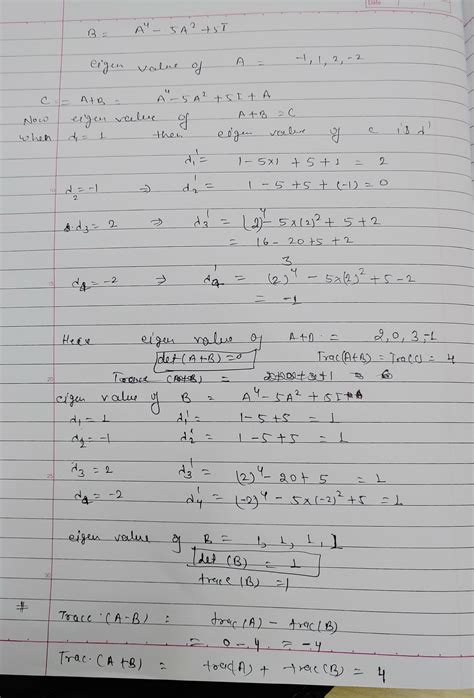 Date
B = A⁴ - 5A² + 5I
eigen value of A = -1, 1, 2, -2
C = A+B = A⁴ - 5A² + 5I + A
Now eigen value of A+B = C
when λ = 1 then eigen value of C is λ'
λ₁' = 1 - 5×1 + 5 + 1 = 2
λ₂ = -1 ⇒ λ₂' = 1 - 5 + 5 + (-1) = 0
λ₃ = 2 ⇒ λ₃' = (2)⁴ - 5×(2)² + 5 + 2
= 16 - 20 + 5 + 2
3
λ₄ = -2 ⇒ λ₄' = (2)⁴ - 5×(2)² + 5 - 2
= -1
Here eigen value of A+B = 2, 0, 3, -1
det (A+B) = 0 Trac(A+B) = Trac(C) = 4
eigen value of B = A⁴ - 5A² + 5I
λ₁ = 1 λ₁' = 1 - 5 + 5 = 1
λ₂ = -1 λ₂' = 1 - 5 + 5 = 1
λ₃ = 2 λ₃' = (2)⁴ - 20 + 5 = 1
λ₄ = -2 λ₄' = (-2)⁴ - 5×(-2)² + 5 = 1
eigen value of B = 1, 1, 1, 1
det (B) = 1
trace (B) = 1
# Trace (A-B) = trac(A) - trac(B)
= 0 - 4 = -4
Trac (A+B) = trac(A) + trac(B) = 4